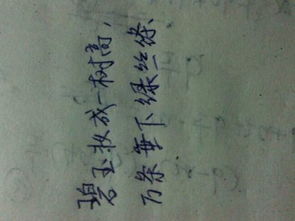 碧玉妆成一树高，
万条垂下绿丝绦